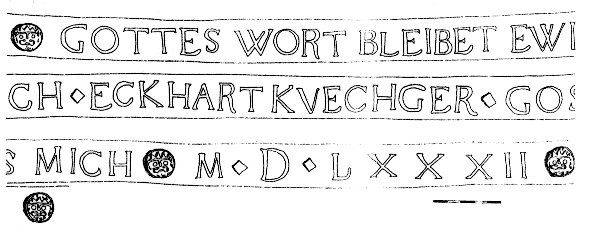 GOTTES WORT BLEIBET EWI
CH◇ECKHART KVECHGER◇GOS
S MICH M◇D◇L X X X II